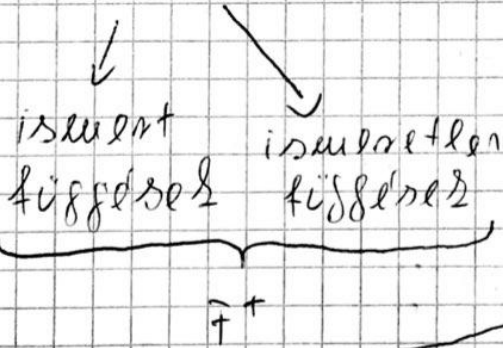 ismert
függések
ismeretlen
függések
F+